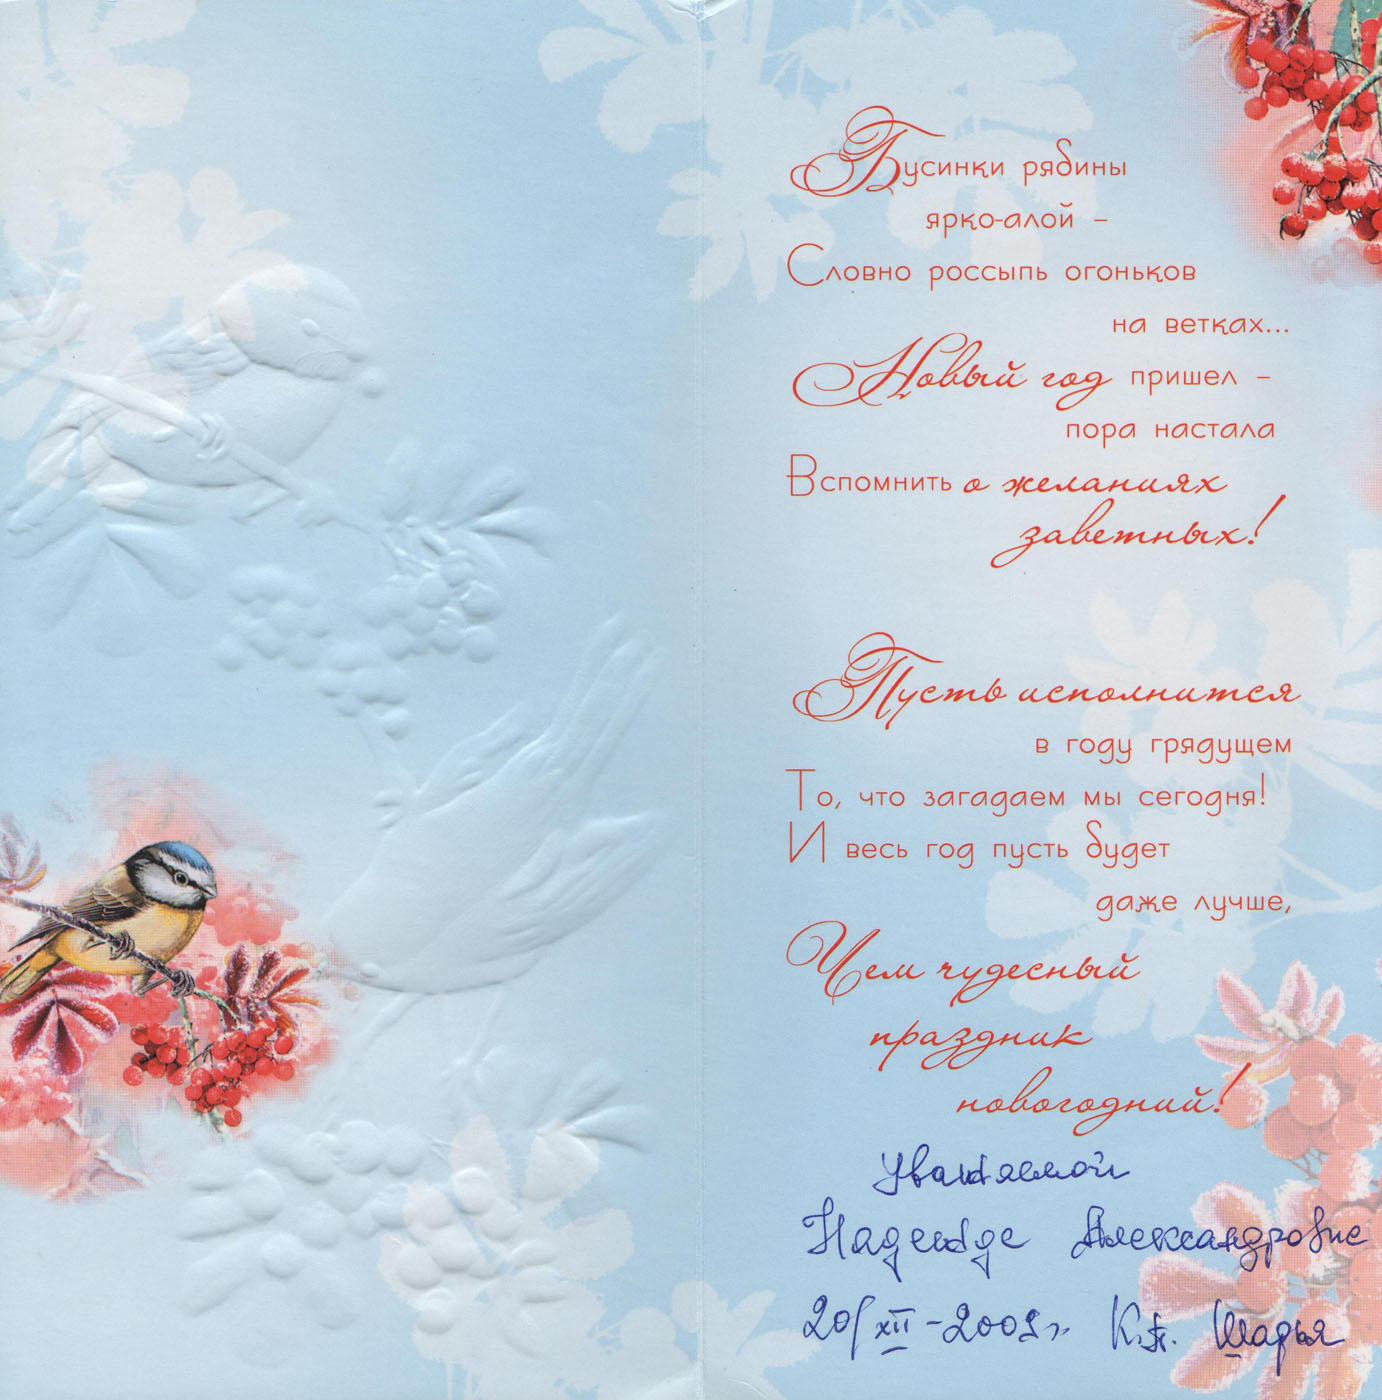 Бусинки рябины
ярко-алой –
Словно россыпь огоньков
на ветках...
Новый год пришел –
пора настала
Вспомнить о желаниях
заветных!
Пусть исполнится
в году грядущем
То, что загадаем мы сегодня!
И весь год пусть будет
даже лучше,
Чем чудесный
праздник
новогодний!
Уважаемой
Надежде Александровне
20/XII – г. Шарья